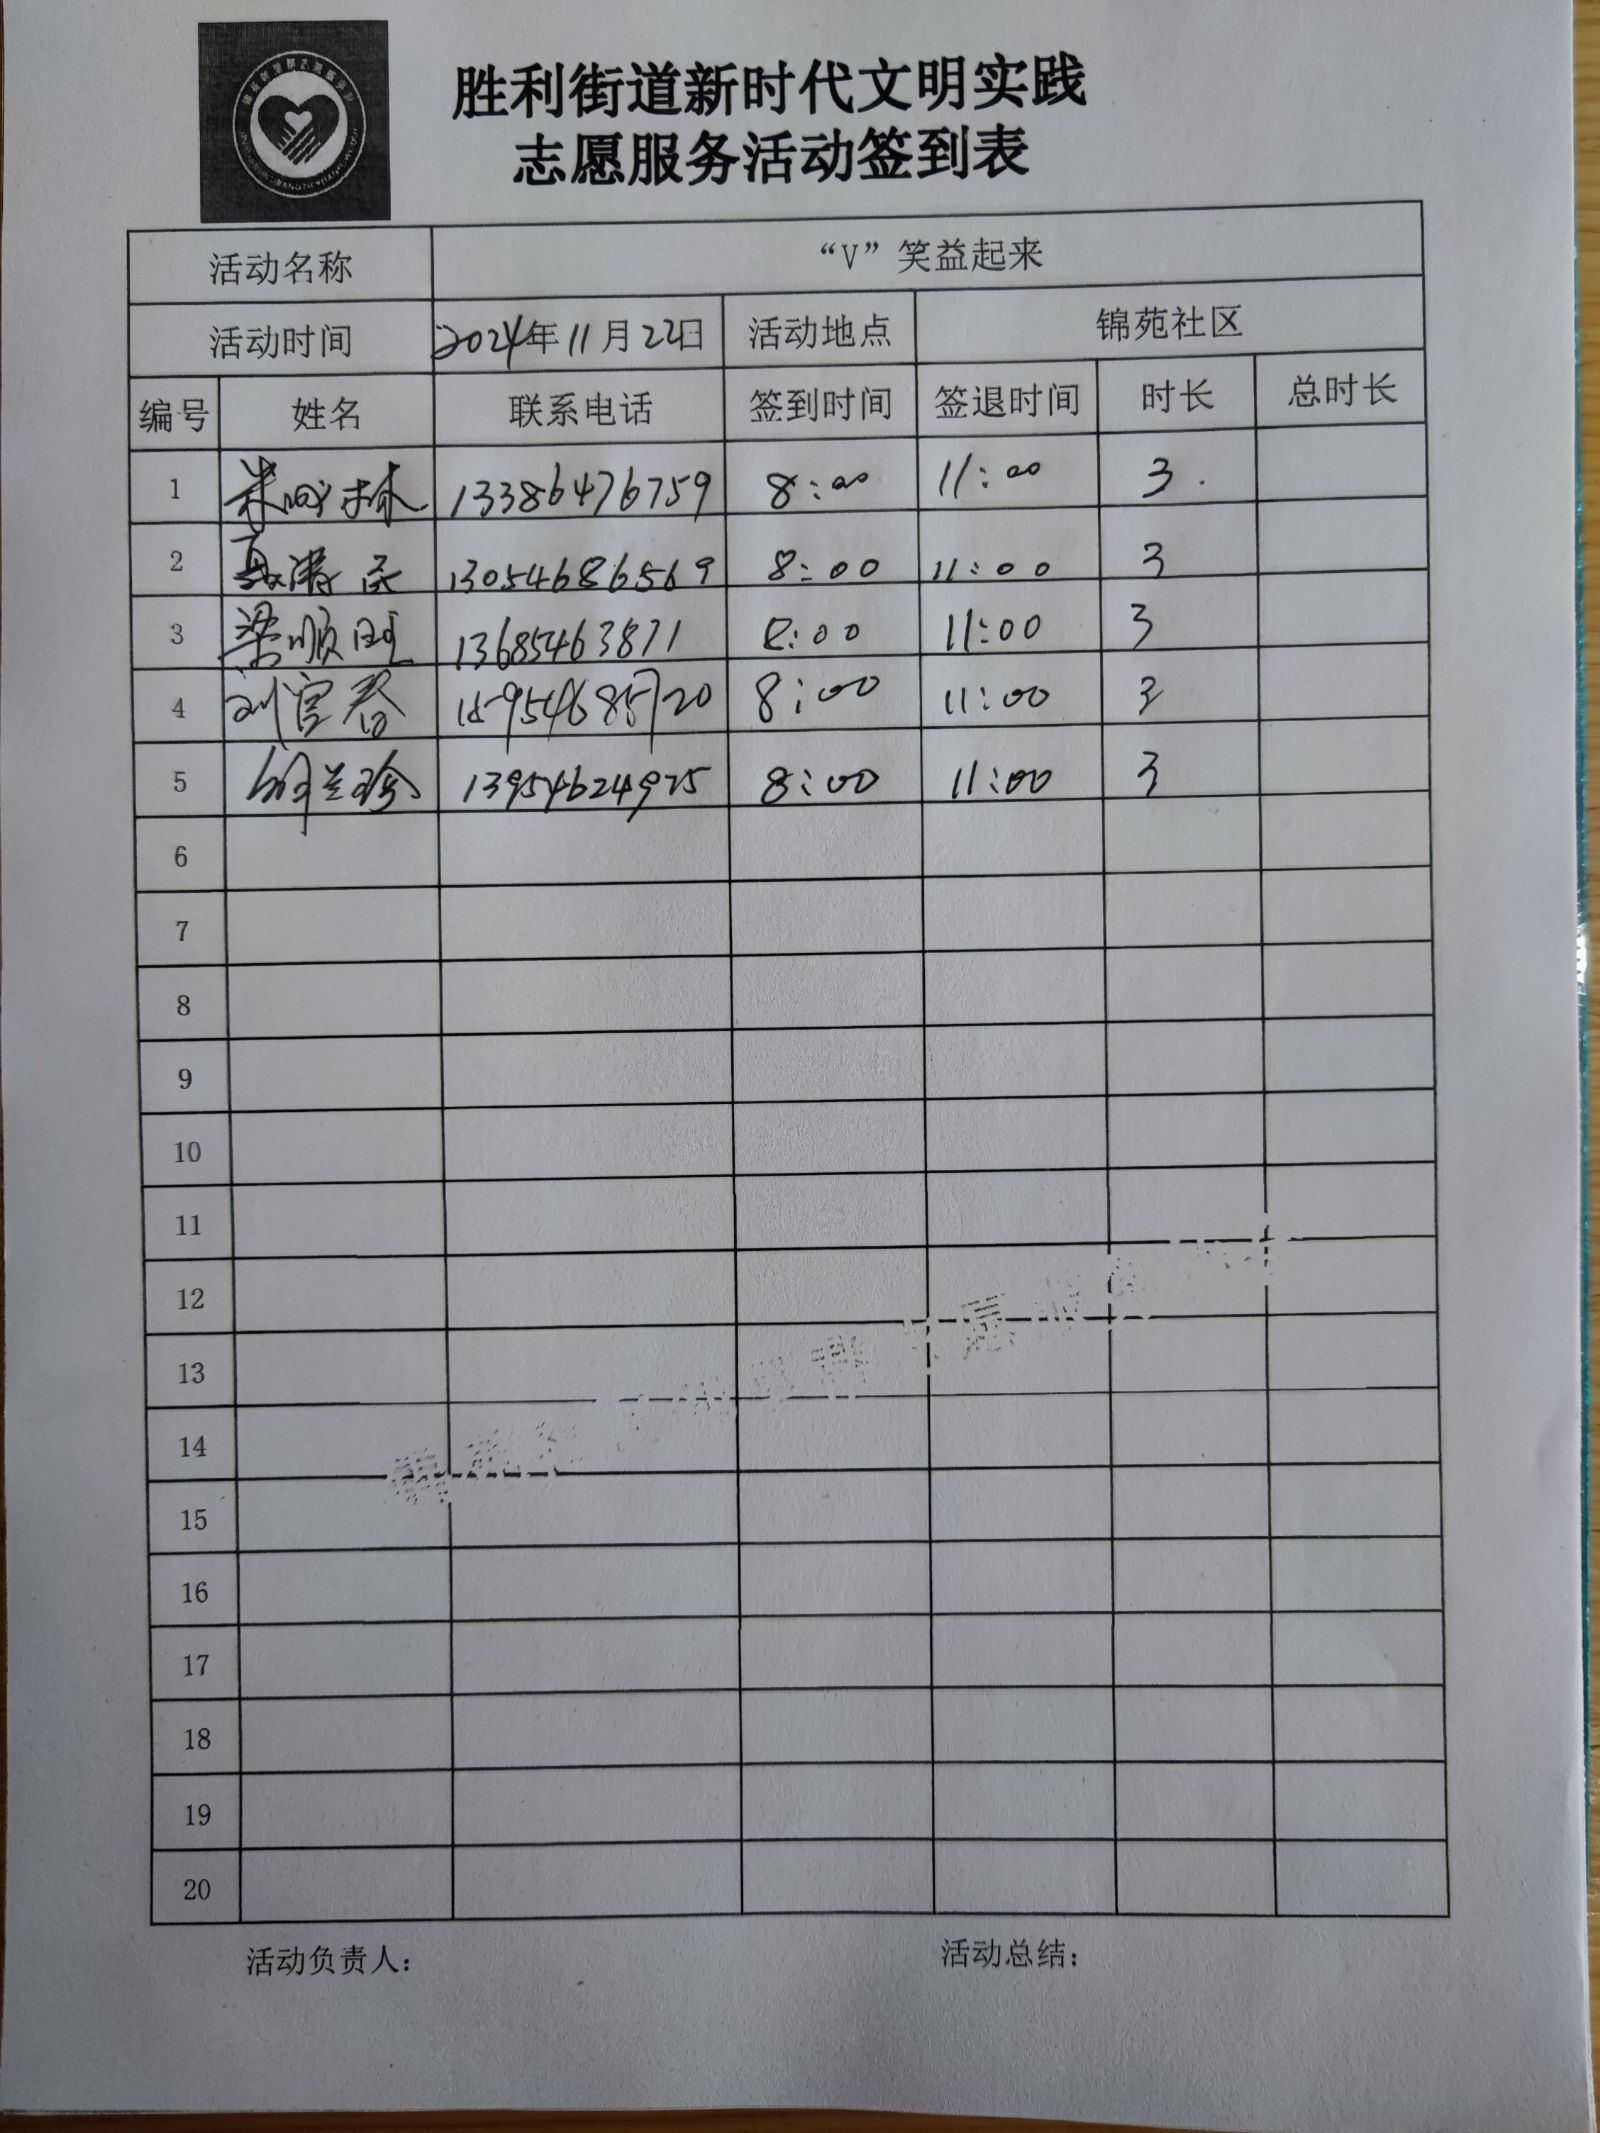 胜利街道新时代文明实践
志愿服务活动签到表
活动名称 “V”笑益起来
活动时间 2024年11月22日 活动地点 锦苑社区
编号 姓名 联系电话 签到时间 签退时间 时长 总时长
1 13386476759 8:00 11:00 3
2 13054686569 8:00 11:00 3
3 梁顺旺 13685463871 8:00 11:00 3
4 刘官春 15954685720 8:00 11:00 3
5 13954624975 8:00 11:00 3
6
7
8
9
10
11
12
13
14
15
16
17
18
19
20
活动负责人： 活动总结：